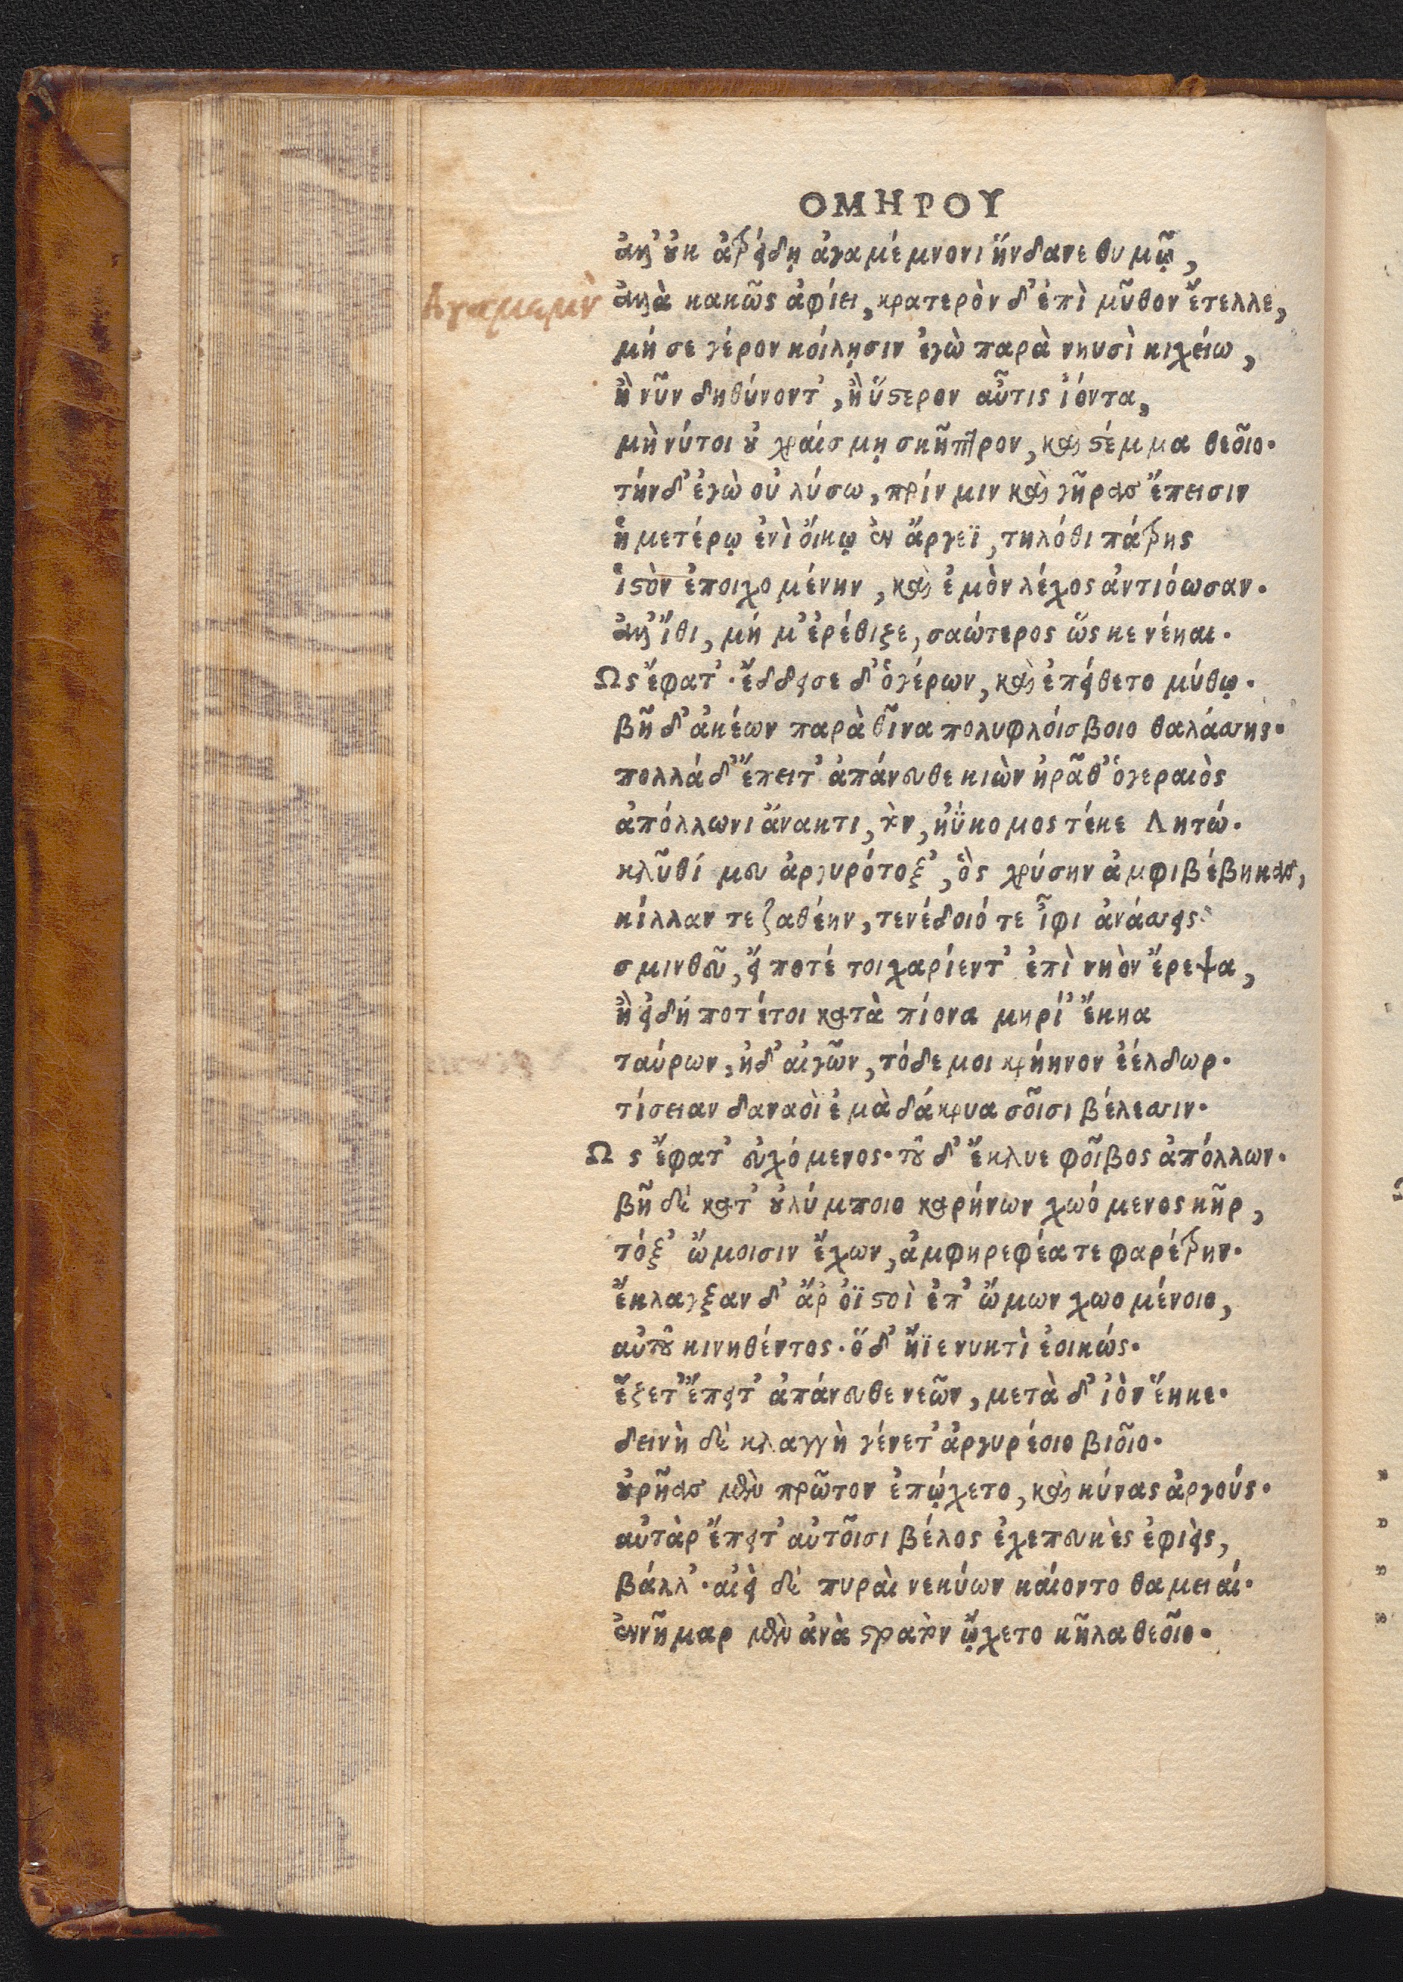 ΟΜΗΡΟΥ
ἀλλ' οὐκ ἀτρείδῃ ἀγαμέμνονι ἥνδανε θυμῷ,
Αγαμεμν
ἀλλὰ κακῶς ἀφίει, κρατερὸν δ' ἐπὶ μῦθον ἔτελλε,
μή σε γέρον κοίλῃσιν ἐγὼ παρὰ νηυσὶ κιχείω,
ἢ νῦν δηθύνοντ', ἢ ὕστερον αὖτις ἰόντα,
μὴ νύτοι οὐ χραίσμῃ σκῆπτρον, καὶ στέμμα θεοῖο.
τήνδ' ἐγὼ οὐ λύσω, πρίν μιν καὶ γῆρας ἔπεισιν
ἡμετέρῳ ἐνὶ οἴκῳ ἐν ἄργεϊ, τηλόθι πάτρης
ἱστὸν ἐποιχομένην, καὶ ἐμὸν λέχος ἀντιόωσαν.
ἀλλ' ἴθι, μή μ' ἐρέθιζε, σαώτερος ὥς κε νέηαι.
Ως ἔφατ'. ἔδδεισε δ' ὁ γέρων, καὶ ἐπείθετο μύθῳ.
βῆ δ' ἀκέων παρὰ θῖνα πολυφλοίσβοιο θαλάσσης.
πολλά δ' ἔπειτ' ἀπάνευθε κιὼν ἠρᾶθ' ὁ γεραιὸς
ἀπόλλωνι ἄνακτι, τὸν, ἠΰκομος τέκε Λητώ.
κλῦθί μευ ἀργυρότοξ', ὃς χρύσην ἀμφιβέβηκας,
κίλλαν τε ζαθέην, τενέδοιό τε ἶφι ἀνάσσεις
σμινθεῦ, εἴ ποτέ τοι χαρίεντ' ἐπὶ νηὸν ἔρεψα,
ἢ εἰ δή ποτέ τοι κατὰ πίονα μηρί' ἔκηα
ταύρων, ἠδ' αἰγῶν, τόδε μοι κρήηνον ἐέλδωρ.
τίσειαν δαναοὶ ἐμὰ δάκρυα σοῖσι βέλεσσιν.
Ως ἔφατ' εὐχόμενος. τοῦ δ' ἔκλυε φοῖβος ἀπόλλων.
βῆ δὲ κατ' οὐλύμποιο καρήνων χωόμενος κῆρ,
τόξ' ὤμοισιν ἔχων, ἀμφηρεφέα τε φαρέτρην.
ἔκλαγξαν δ' ἄρ ὀϊστοὶ ἐπ' ὤμων χωομένοιο,
αὐτοῦ κινηθέντος. ὅδ' ἤϊε νυκτὶ ἐοικώς.
ἕζετ' ἔπειτ' ἀπάνευθε νεῶν, μετὰ δ' ἰὸν ἕηκε.
δεινὴ δὲ κλαγγὴ γένετ' ἀργυρέοιο βιοῖο.
οὐρῆας μὲν πρῶτον ἐπῴχετο, καὶ κύνας ἀργούς.
αὐτὰρ ἔπειτ' αὐτοῖσι βέλος ἐχεπευκὲς ἐφιεὶς,
βάλλ'. αἰεὶ δὲ πυραὶ νεκύων καίοντο θαμειαί.
ἐννῆμαρ μὲν ἀνὰ στρατὸν ᾤχετο κῆλα θεοῖο.